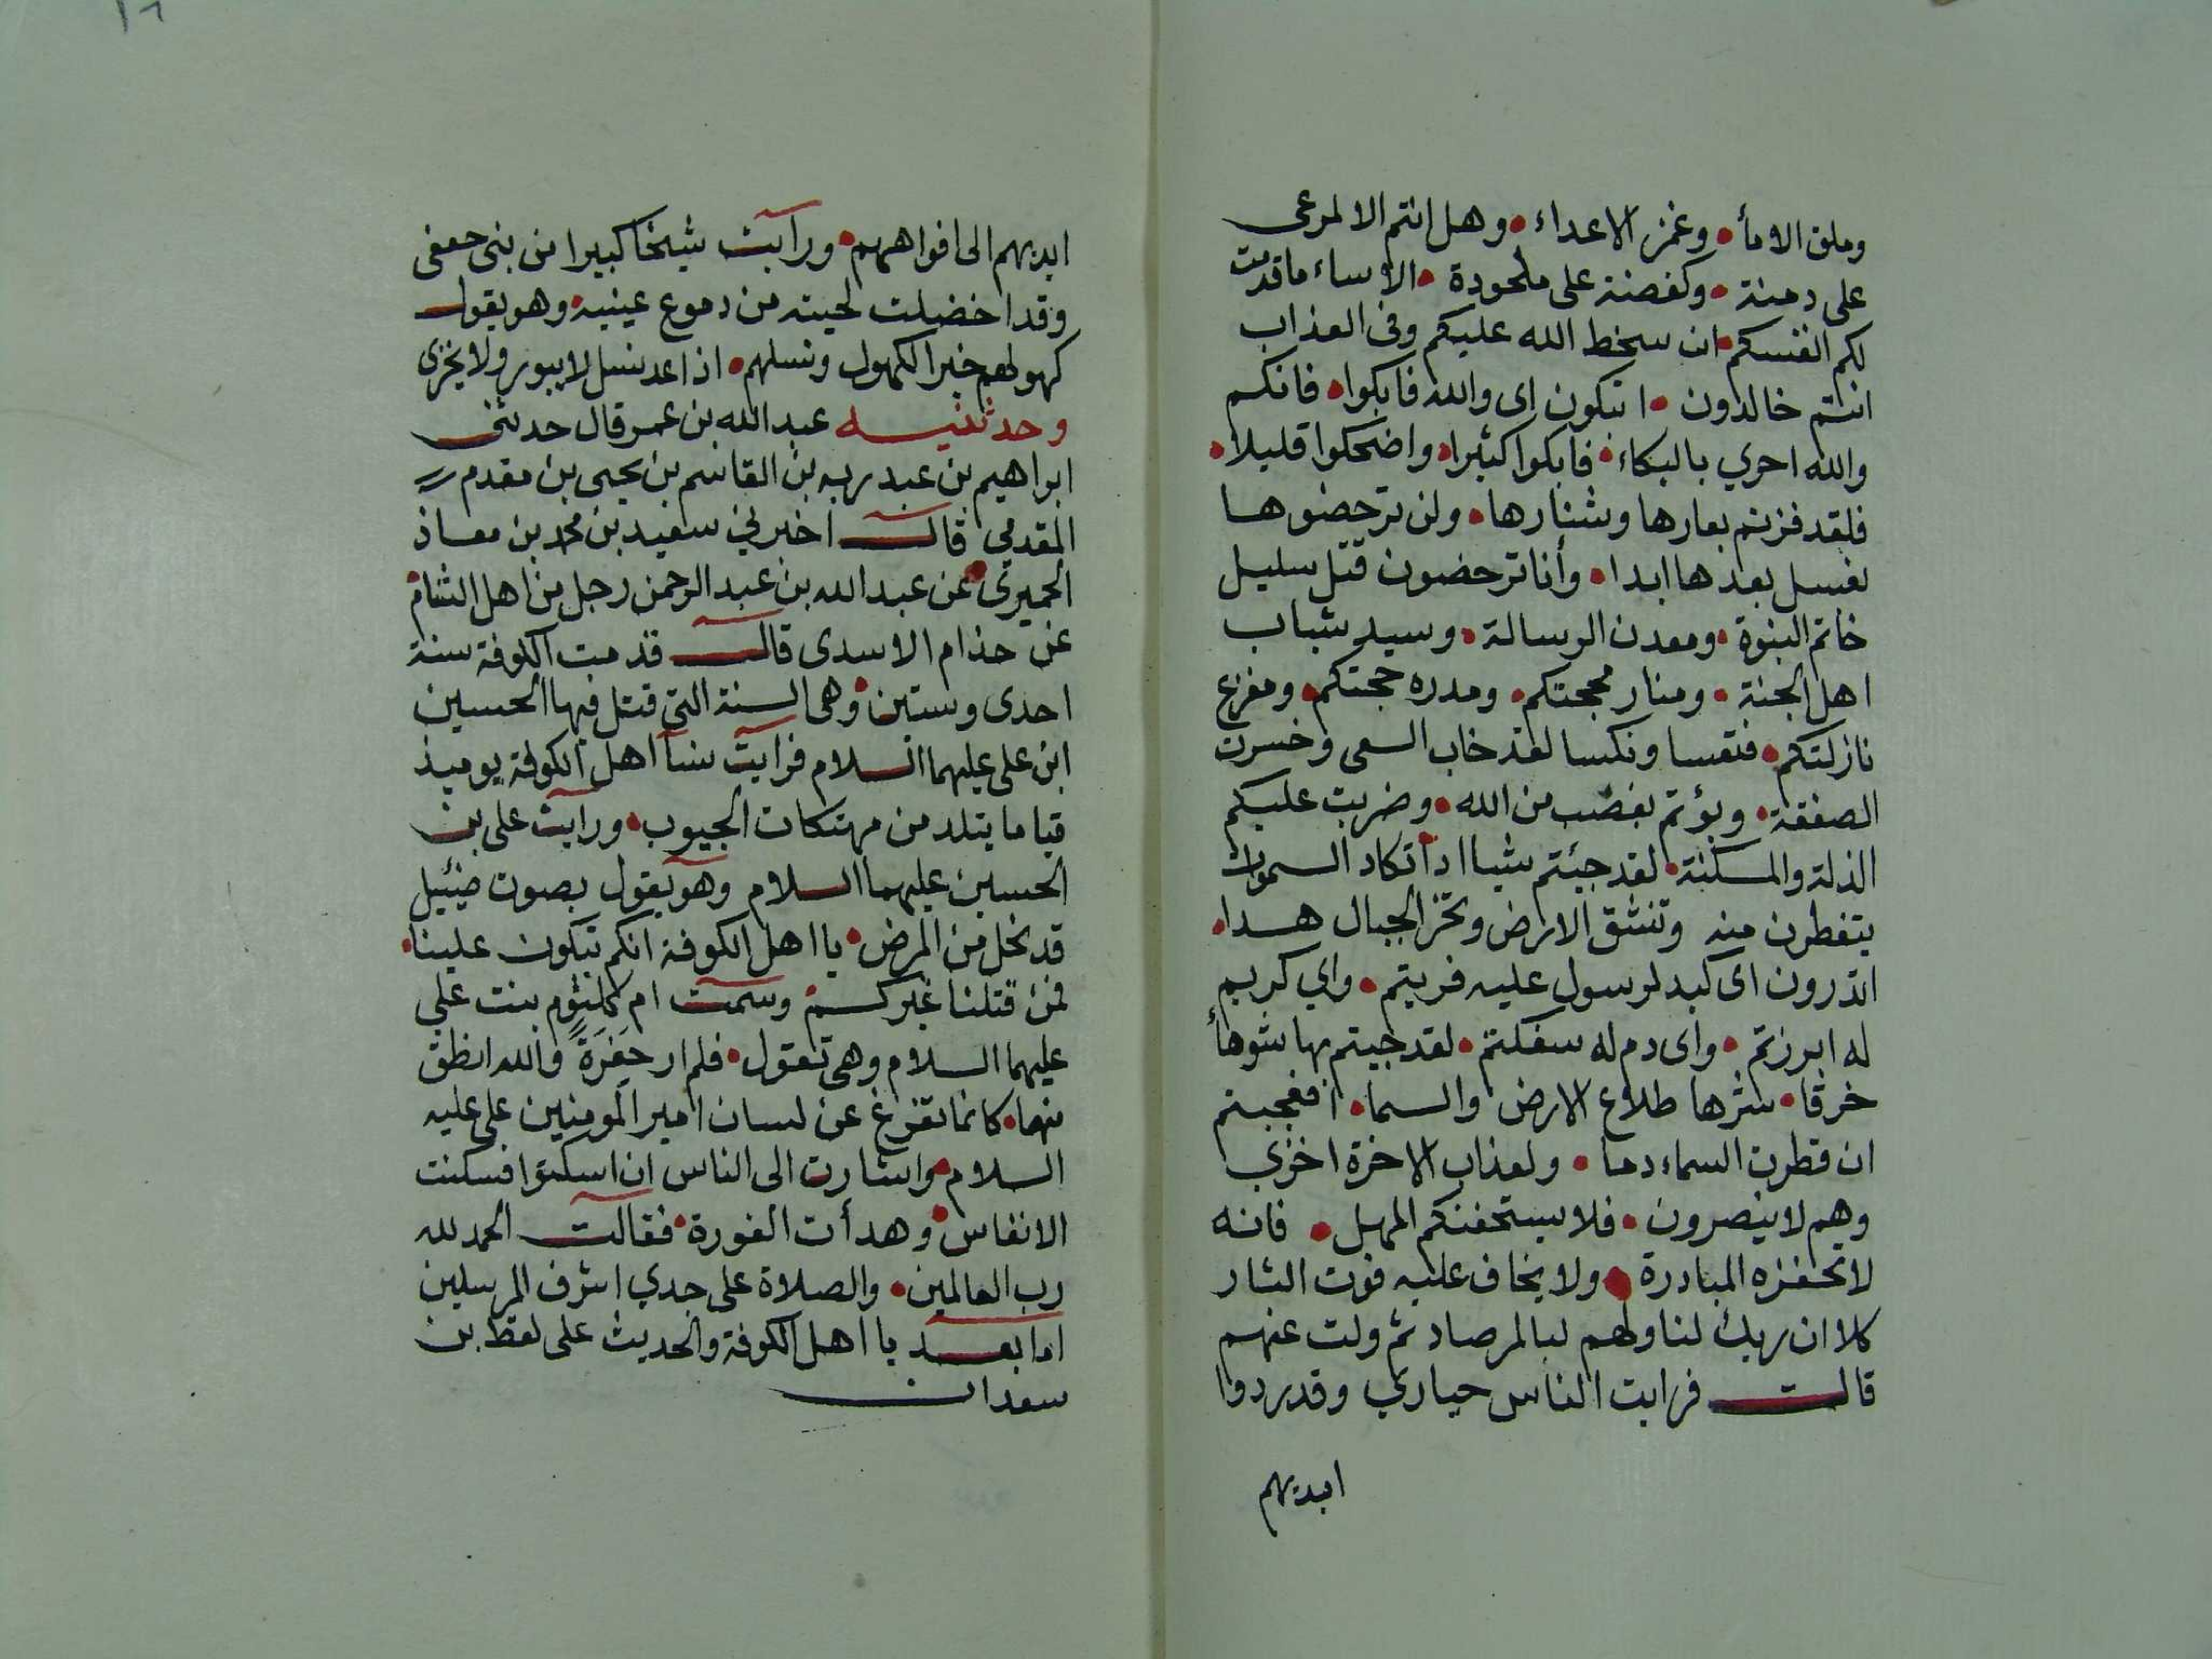 وملق الامأ • وغمز الاعداء • وهل انتم الا لمرعى
على دمنة • وكفضة على ملحودة • الا ساء ما قدمت
لكم انفسكم • ان سخط الله عليكم وفى العذاب
انتم خالدون • اتبكون اى والله فابكوا • فانكم
والله احري بالبكاء • فابكوا كثيرا • واضحكوا قليلا •
فلقد فزتم بعارها وشنارها • ولن ترحضوها
بغسل بعدها ابدا • وأنا ترحضون قتل سليل
خاتم النبوة • ومعدن الرسالة • وسيد شباب
اهل الجنة • ومنار محجتكم • ومدره حجتكم • ومفرع
نازلتكم • فتعسا ونكسا لقد خاب السعى وخسرت
الصفقة • وبؤتم بغضب من الله • وضربت عليكم
الذلة والمسكنة • لقد جئتم شيا ادا تكاد السموات
يتفطرن منه وتنشق الارض وتخر الجبال هدا •
اتدرون اى كبد لرسول عليه فريتم • واي كريم
له ابرزتم • واى دم له سفكتم • لقد جيتم بها شوهأ
خرقا • شرها طلاع الارض والسما • افعجبتم
ان قطرت السماء دما • ولعذاب الاخرة اخزي
وهم لا ينصرون • فلا يستخفنكم المهل • فانه
لا تحفزه المبادرة • ولا يخاف عليه فوت الثار
كلا ان ربك لنا ولهم لبالمرصاد ثم ولت عنهم
قالت فرايت الناس حياري وقد ردوا
ايديهم
١٦
ايديهم الى افواههم • ورآيت شيخا كبيرا من بنى جعفى
وقد اخضلت لحيته من دموع عينيه • وهو يقول
كهولهم خير الكهول ونسلهم • اذا عد نسل لا يبور ولا يخزى
وحدثنيه عبد الله بن عمر قال حدثنى
ابراهيم بن عبد ربه بن القاسم بن يحيى بن مقدم
المقدمي قال اخبرني سعيد بن محمد بن معاذ
الحميرى • عن عبد الله بن عبد الرحمن رجل من اهل الشام •
عن حذام الاسدى قال قدمت الكوفة سنة
احدى وستين • وهى السنة التى قتل فيها الحسين
ابن على عليهما السلام فرايت نسآ اهل الكوفة يوميذ
قياما يتلدمن مهتكات الجيوب • ورايت على بن
الحسين عليهما السلام وهو يقول بصوت ضئيل
قد نحل من المرض • يا اهل الكوفة انكم تبكون علينا •
فمن قتلنا غيركم • وسمعت ام كلثوم بنت على
عليهما السلام وهى تقول • فلم ار خَفِرَةً والله انطق
منها • كانما تفرغ عن لسان امير المومنين على عليه
السلام • واشارت الى الناس ان اسكتوا فسكنت
الانفاس • وهدأت الفورة • فقالت الحمد لله
رب العالمين • والصلاة على جدي اشرف المرسلين
اما بعد يا اهل الكوفة والحديث على لفظ بن
سعدان